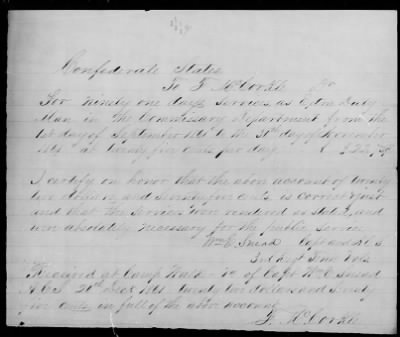 Confederate States
To F. McCorkle Dr
For ninety one days services as Extra Duty
Man in the Commissary Department from the
1st day of September 1861 to the 30th day of November
1861 at twenty five cents per day $22.75
I certify on honor that the above account of twenty
two dollars and seventy five cents is correct & just
and that the services were rendered as stated, and
were absolutely necessary for the public service
Wm C. Capt and A.C.S.
3rd Regt Tenn Vols
Received at Camp Va of Capt Wm C.
A.C.S. 20th Dec 1861 twenty two dollars and seventy
five cents in full of the above account
F. McCorkle